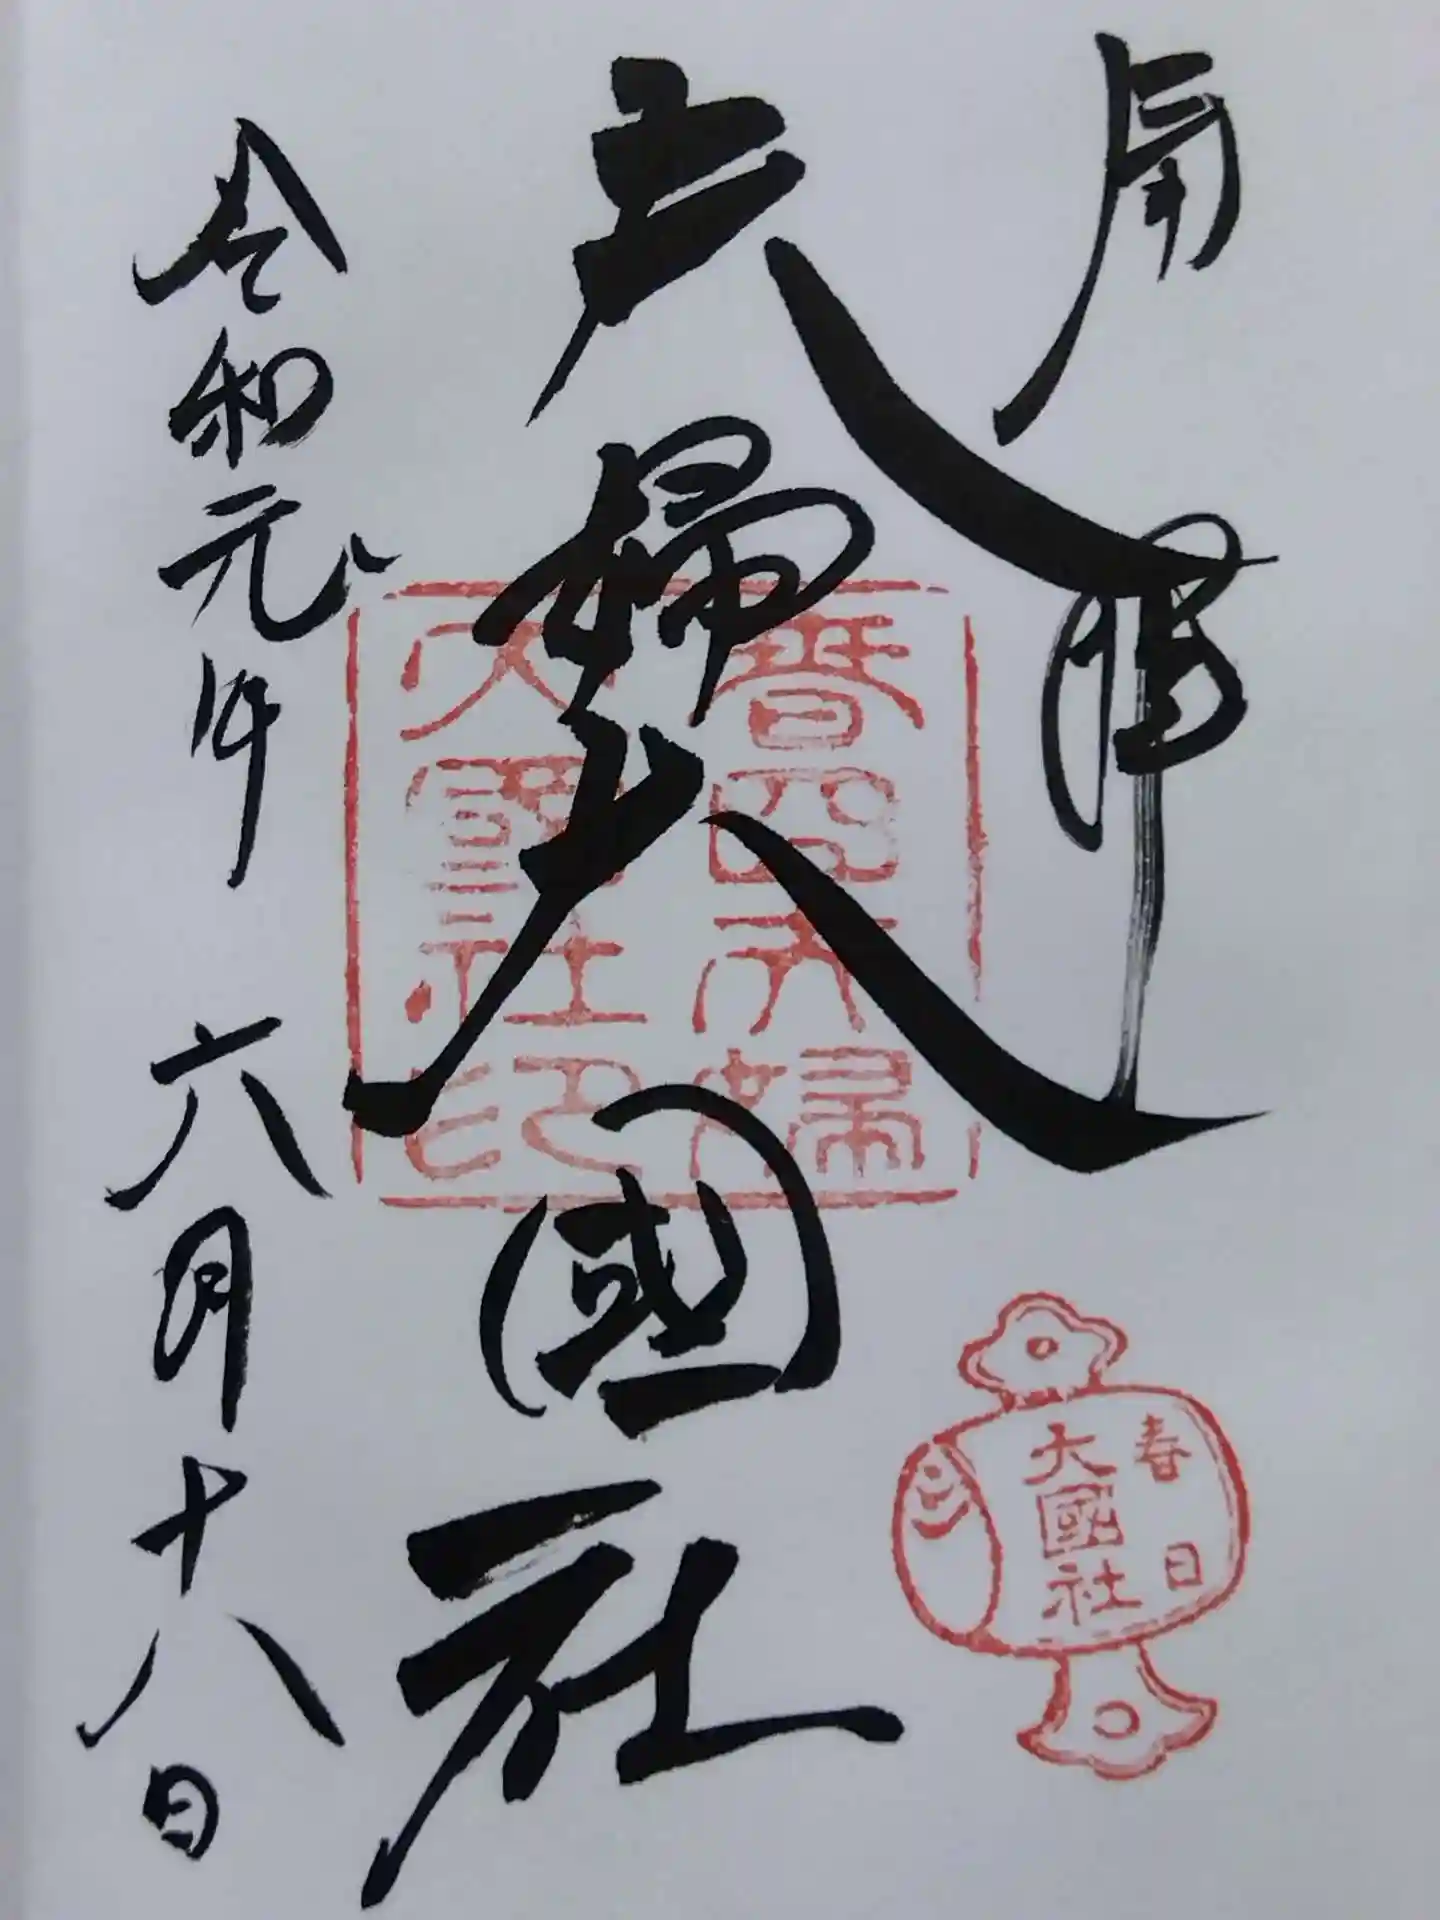 奉拝
夫婦大國社
春日夫婦
大國社印
春日
大國社
令和元年 六月十八日